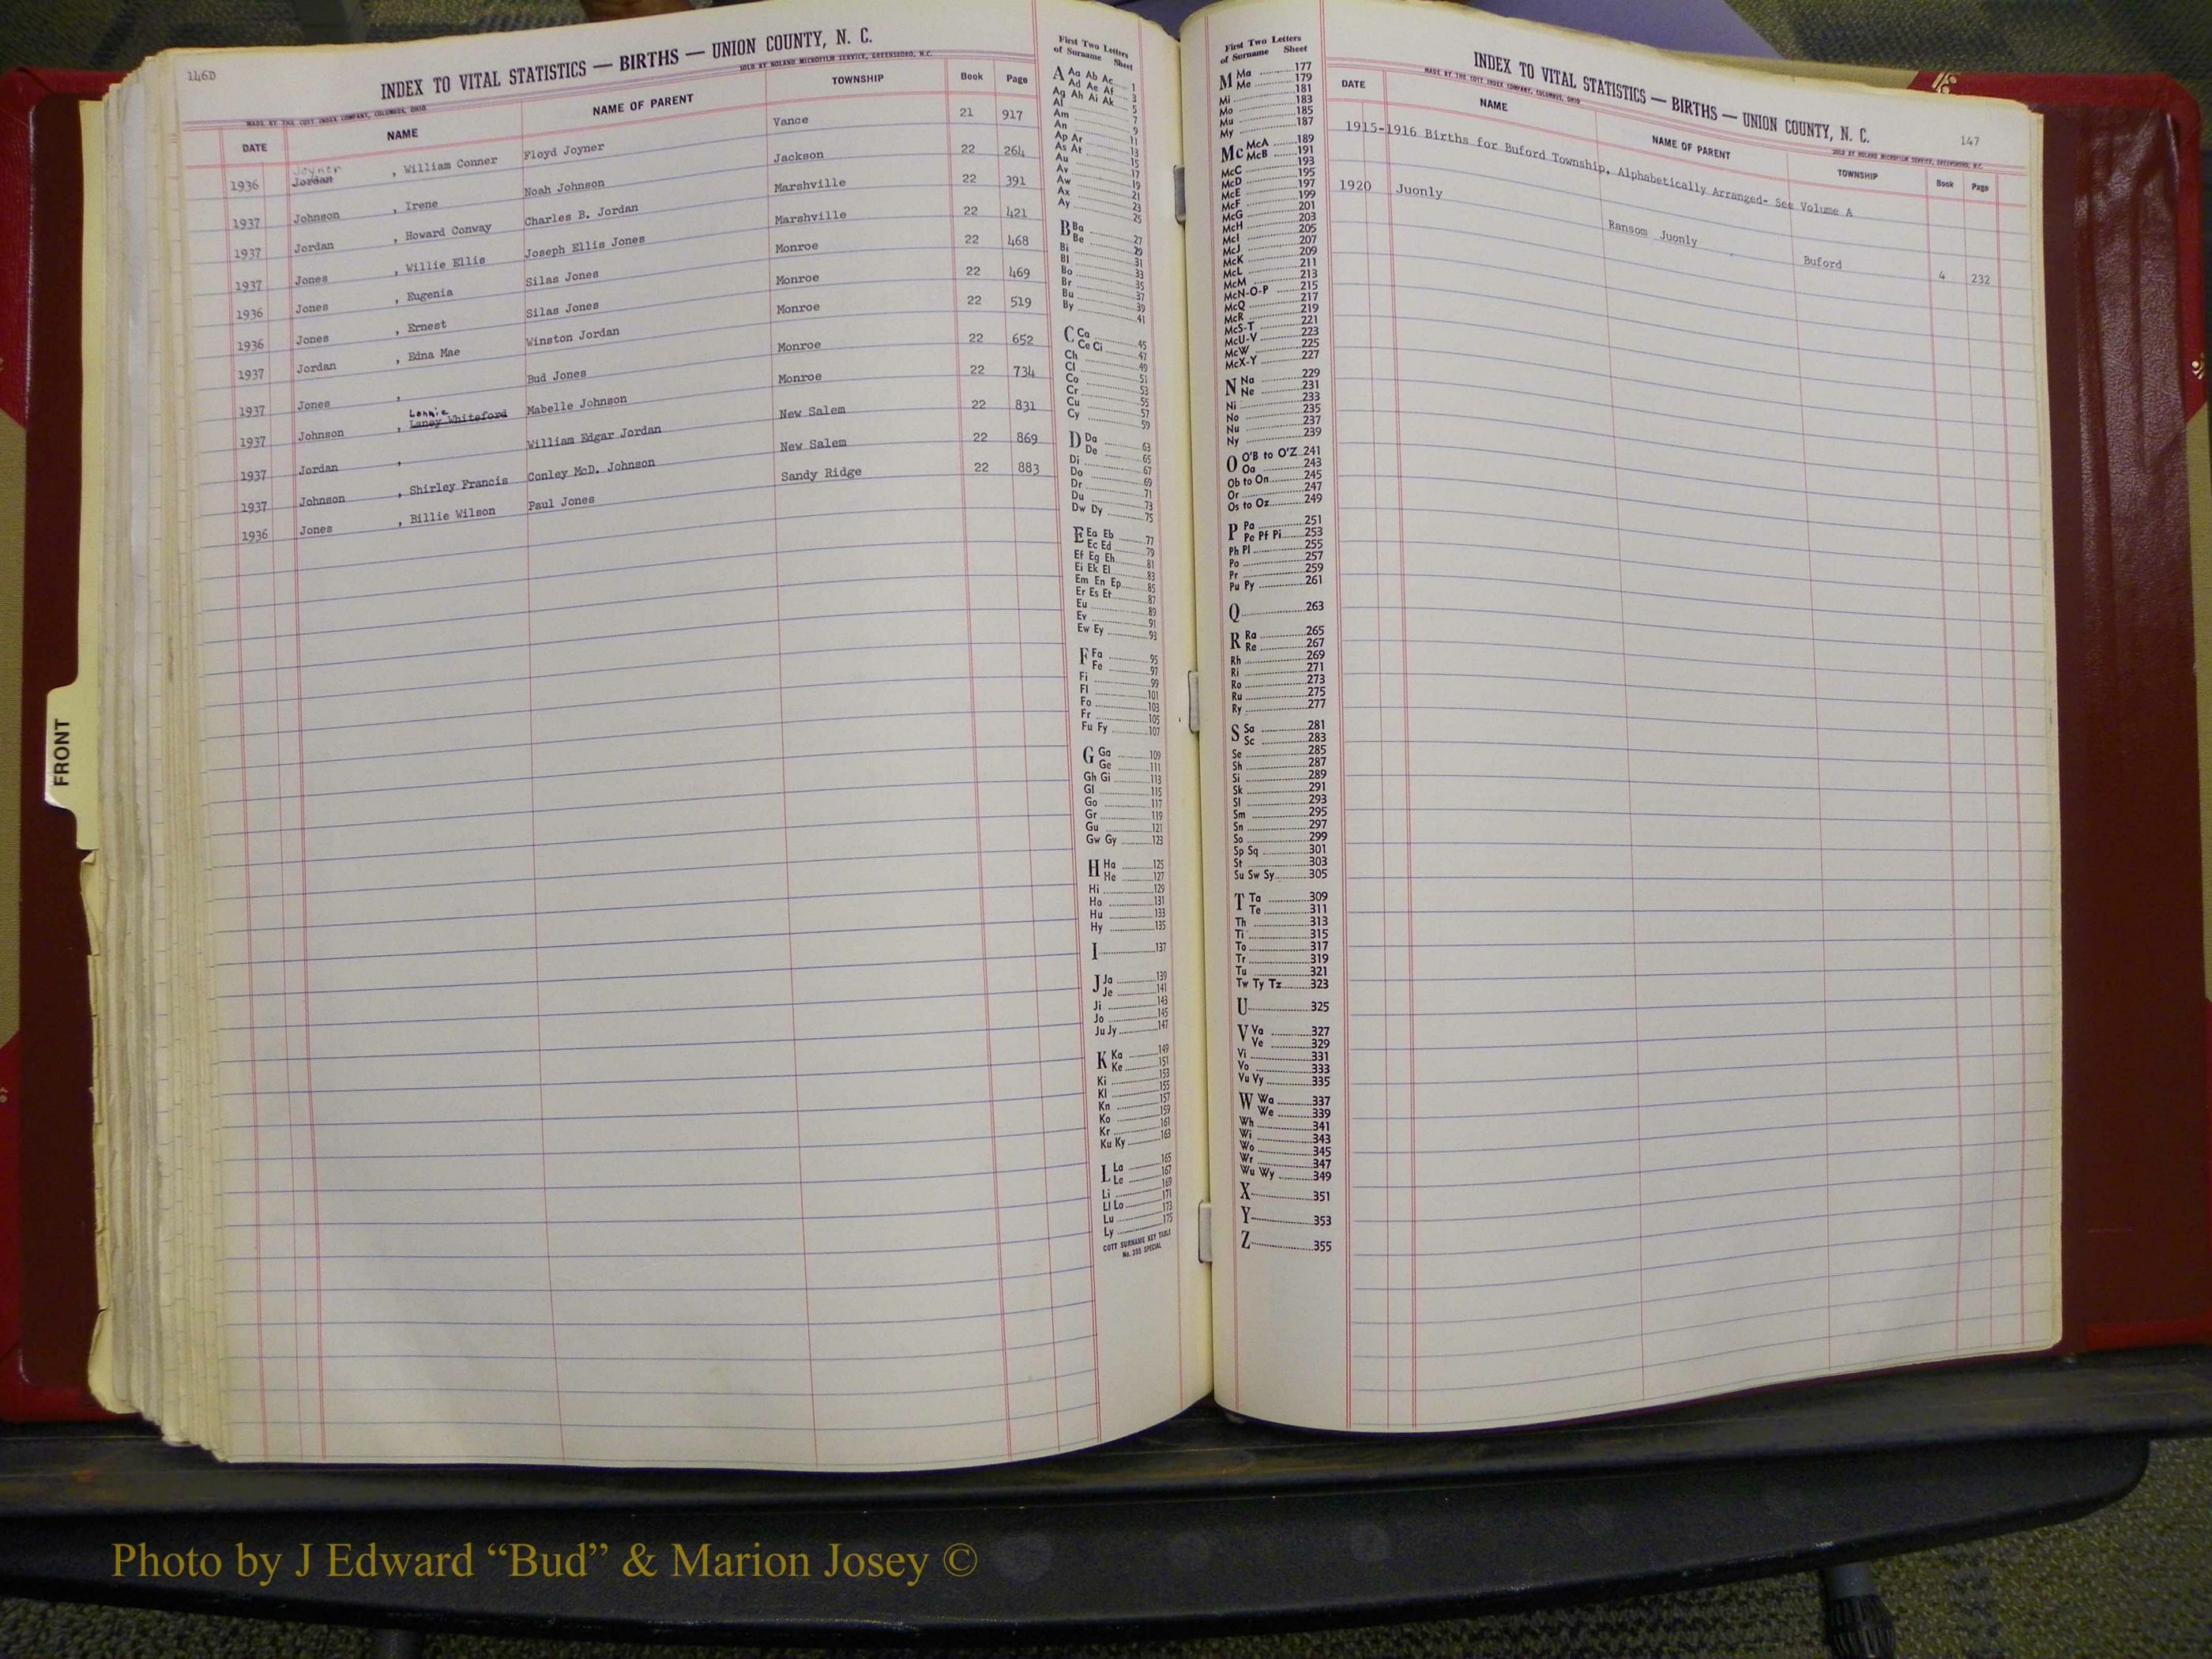 146D
INDEX TO VITAL STATISTICS — BIRTHS — UNION COUNTY, N. C.
MADE BY THE COTT INDEX COMPANY, COLUMBUS, OHIO SOLD BY NOLAND MICROFILM SERVICE, GREENSBORO, N.C.
DATE NAME NAME OF PARENT TOWNSHIP Book Page
Joyner
1936 Jordan , William Conner Floyd Joyner Vance 21 917
1937 Johnson , Irene Noah Johnson Jackson 22 264
1937 Jordan , Howard Conway Charles B. Jordan Marshville 22 391
1937 Jones , Willie Ellis Joseph Ellis Jones Marshville 22 421
1936 Jones , Eugenia Silas Jones Monroe 22 468
1936 Jones , Ernest Silas Jones Monroe 22 469
1937 Jordan , Edna Mae Winston Jordan Monroe 22 519
1937 Jones , Bud Jones Monroe 22 652
Lonnie
1937 Johnson , Laney Whiteford Mabelle Johnson Monroe 22 734
1937 Jordan , William Edgar Jordan New Salem 22 831
1937 Johnson , Shirley Francis Conley McD. Johnson New Salem 22 869
1936 Jones , Billie Wilson Paul Jones Sandy Ridge 22 883
First Two Letters
of Surname Sheet
A Aa Ab Ac 1
Ad Ae Af 3
Ag Ah Ai Ak 5
Al 7
Am 9
An 11
Ap Ar 13
As At 15
Au 17
Av 19
Aw 21
Ax 23
Ay 25
B Ba 27
Be 29
Bi 31
Bl 33
Bo 35
Br 37
Bu 39
By 41
C Ca 45
Ce Ci 47
Ch 49
Cl 51
Co 53
Cr 55
Cu 57
Cy 59
D Da 63
De 65
Di 67
Do 69
Dr 71
Du 73
Dw Dy 75
E Ea Eb 77
Ec Ed 79
Ef Eg Eh 81
Ei Ek El 83
Em En Ep 85
Er Es Et 87
Eu 89
Ev 91
Ew Ey 93
F Fa 95
Fe 97
Fi 99
Fl 101
Fo 103
Fr 105
Fu Fy 107
G Ga 109
Ge 111
Gh Gi 113
Gl 115
Go 117
Gr 119
Gu 121
Gw Gy 123
H Ha 125
He 127
Hi 129
Ho 131
Hu 133
Hy 135
I 137
J Ja 139
Je 141
Ji 143
Jo 145
Ju Jy 147
K Ka 149
Ke 151
Ki 153
Kl 155
Kn 157
Ko 159
Kr 161
Ku Ky 163
L La 165
Le 167
Li 169
Ll Lo 171
Lu 173
Ly 175
COTT SURNAME KEY TABLE
No. 355 SPECIAL
First Two Letters
of Surname Sheet
M Ma 177
Me 179
Mi 181
Mo 183
Mu 185
My 187
Mc McA 189
McB 191
McC 193
McD 195
McE 197
McF 199
McG 201
McH 203
McI 205
McJ 207
McK 209
McL 211
McM 213
McN-O-P 215
McQ 217
McR 219
McS-T 221
McU-V 223
McW 225
McX-Y 227
N Na 229
Ne 231
Ni 233
No 235
Nu 237
Ny 239
O O'B to O'Z 241
Oa 243
Ob to On 245
Or 247
Os to Oz 249
P Pa 251
Pe Pf Pi 253
Ph Pl 255
Po 257
Pr 259
Pu Py 261
Q 263
R Ra 265
Re 267
Rh 269
Ri 271
Ro 273
Ru 275
Ry 277
S Sa 281
Sc 283
Se 285
Sh 287
Si 289
Sk 291
Sl 293
Sm 295
Sn 297
So 299
Sp Sq 301
St 303
Su Sw Sy 305
T Ta 309
Te 311
Th 313
Ti 315
To 317
Tr 319
Tu 321
Tw Ty Tz 323
U 325
V Va 327
Ve 329
Vi 331
Vo 333
Vu Vy 335
W Wa 337
We 339
Wh 341
Wi 343
Wo 345
Wr 347
Wu Wy 349
X 351
Y 353
Z 355
INDEX TO VITAL STATISTICS — BIRTHS — UNION COUNTY, N. C.
147
MADE BY THE COTT INDEX COMPANY, COLUMBUS, OHIO SOLD BY NOLAND MICROFILM SERVICE, GREENSBORO, N.C.
DATE NAME NAME OF PARENT TOWNSHIP Book Page
1915-1916 Births for Buford Township, Alphabetically Arranged- See Volume A
1920 Juonly Ransom Juonly Buford 4 232
FRONT
Photo by J Edward “Bud” & Marion Josey ©